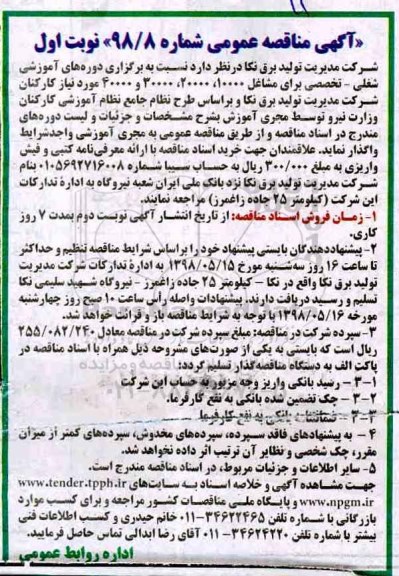 «آگهی مناقصه عمومی شماره ۹۸/۸» نوبت اول
شرکت مدیریت تولید برق نکا درنظر دارد نسبت به برگزاری دوره‌های آموزشی
شغلی - تخصصی برای مشاغل ۱۰۰۰۰، ۲۰۰۰۰، ۳۰۰۰۰ و ۴۰۰۰۰ مورد نیاز کارکنان
شرکت مدیریت تولید برق نکا و براساس طرح نظام جامع نظام آموزشی کارکنان
وزارت نیرو توسط مجری آموزش بشرح مشخصات و جزئیات و لیست دوره‌های
مندرج در اسناد مناقصه و از طریق مناقصه عمومی به مجری آموزشی واجدشرایط
واگذار نماید. علاقمندان جهت خرید اسناد مناقصه با ارائه معرفی‌نامه کتبی و فیش
واریزی به مبلغ ۳۰۰/۰۰۰ ریال به حساب سیبا شماره ۰۱۰۵۶۹۲۷۱۶۰۰۸ بنام
شرکت مدیریت تولید برق نکا نزد بانک ملی ایران شعبه نیروگاه به ادارهٔ تدارکات
این شرکت (کیلومتر ۲۵ جاده زاغمرز) مراجعه نمایند.
۱- زمان فروش اسناد مناقصه: از تاریخ انتشار آگهی نوبت دوم بمدت ۷ روز
کاری.
۲- پیشنهاددهندگان بایستی پیشنهاد خود را براساس شرایط مناقصه تنظیم و حداکثر
تا ساعت ۱۶ روز سه‌شنبه مورخ ۱۳۹۸/۰۵/۱۵ به ادارهٔ تدارکات شرکت مدیریت
تولید برق نکا واقع در نکا – کیلومتر ۲۵ جاده زاغمرز - نیروگاه شهید سلیمی نکا
تسلیم و رسید دریافت دارند. پیشنهادات واصله رأس ساعت ۱۰ صبح روز چهارشنبه
مورخه ۱۳۹۸/۰۵/۱۶ با توجه به شرایط مناقصه باز و قرائت خواهد شد.
۳- سپرده شرکت در مناقصه: مبلغ سپرده شرکت در مناقصه معادل ۲۵۵/۰۸۲/۲۴۰
ریال است که بایستی به یکی از صورت‌های مشروحه ذیل همراه با اسناد مناقصه در
پاکت الف به دستگاه مناقصه گذار تسلیم گردد:
۱-۳ - رسید بانکی واریز وجه مزبور به حساب این شرکت
۲-۳ - چک تضمین شده بانکی به نفع کارفرما.
۳-۳ - ضمانتنامه بانکی به نفع کارفرما
۴ - به پیشنهادهای فاقد سپرده، سپرده‌های مخدوش، سپرده‌های کمتر از میزان
مقرر، چک شخصی و نظایر آن ترتیب اثر داده نخواهد شد.
۵- سایر اطلاعات و جزئیات مربوط، در اسناد مناقصه مندرج است.
جهت مشاهده آگهی و خلاصه اسناد به سایت‌های www.tender.tpph.ir
www.npgm.ir و پایگاه ملی مناقصات کشور مراجعه و برای کسب موارد
بازرگانی با شماره تلفن ۳۴۶۲۲۴۶۵-۰۱۱ خانم حیدری و کسب اطلاعات فنی
بیشتر با شماره تلفن ۳۴۶۲۴۲۲۰- ۰۱۱ آقای رضا ابدالی تماس حاصل فرمایید.
اداره روابط عمومی